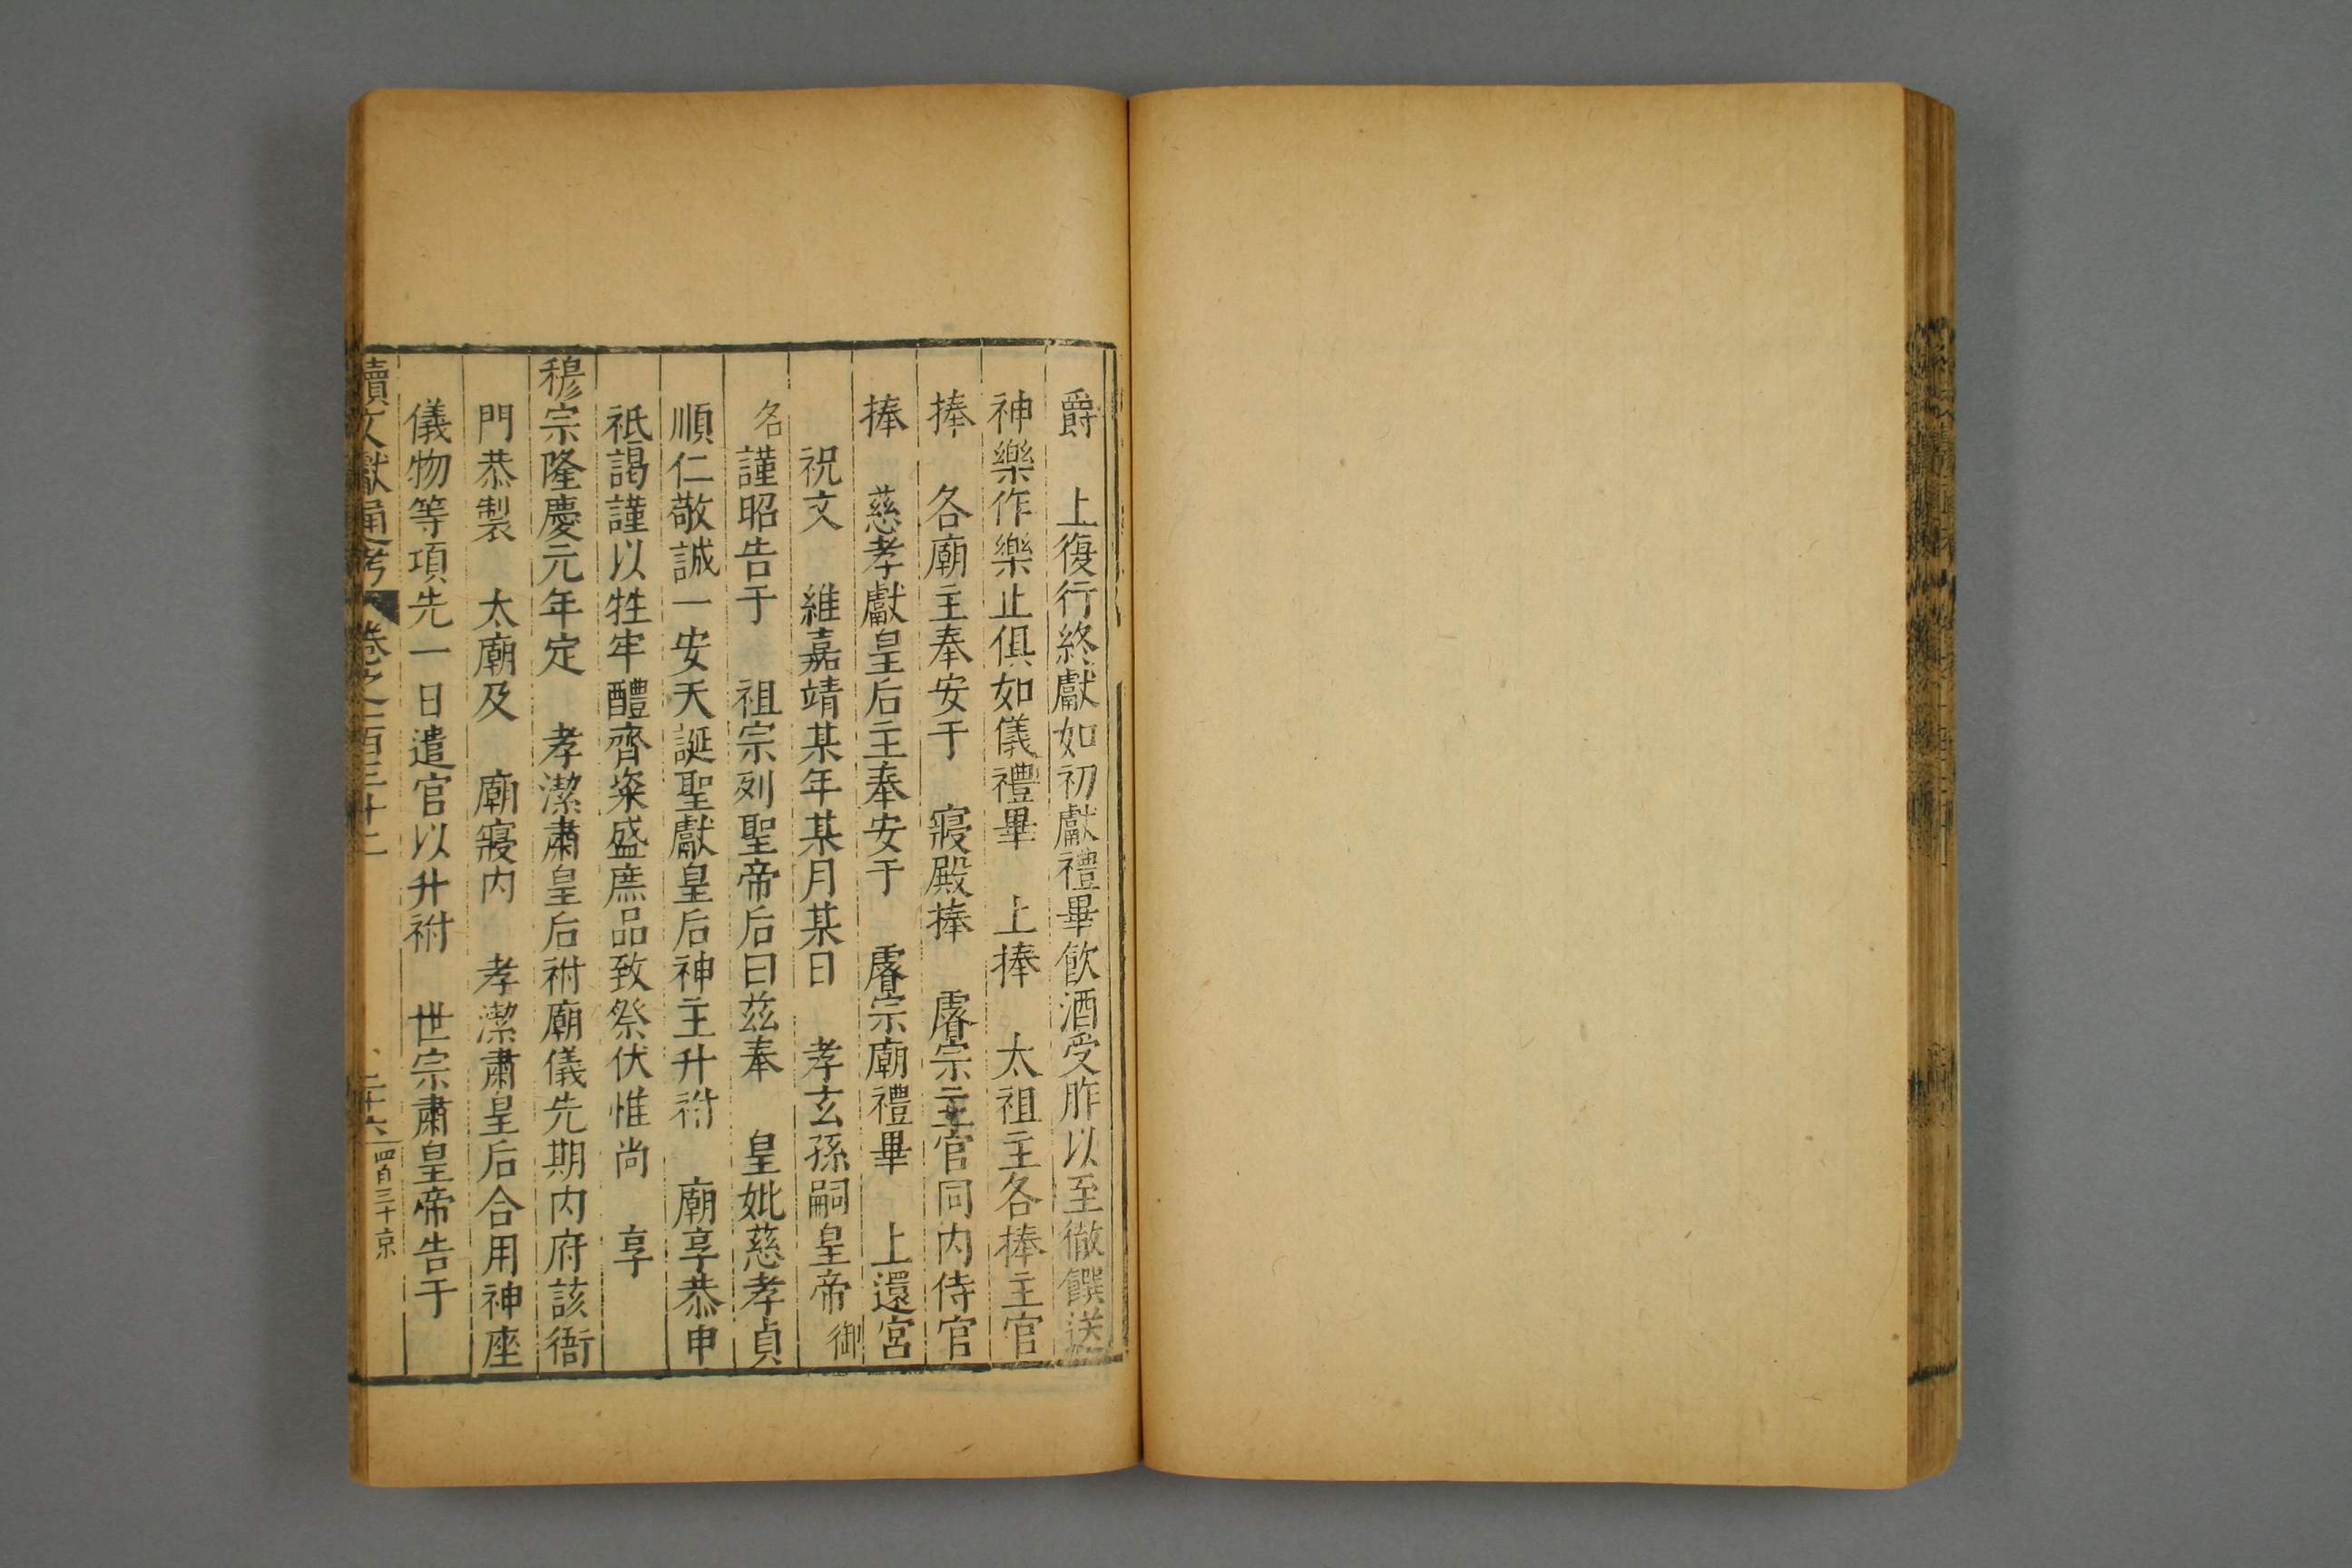 爵　上復行終獻如初獻禮畢飲酒受胙以至徹饌送
神樂作樂止俱如儀禮畢　上捧　太祖主各捧主官
捧　各廟主奉安于　寢殿捧　睿宗主官同内侍官
捧　慈孝獻皇后主奉安于　睿宗廟禮畢　上還宮
祝文　維嘉靖某年某月某日　孝玄孫嗣皇帝　御
名謹昭告于　祖宗列聖帝后曰茲奉　皇妣慈孝貞
順仁敬誠一安天誕聖獻皇后神主升祔　廟享恭申
祇謁謹以牲牢醴齊粢盛庶品致祭伏惟尚　享
穆宗隆慶元年定　孝潔肅皇后祔廟儀先期内府該衙
門恭製　太廟及　廟寢内　孝潔肅皇后合用神座
儀物等項先一日遣官以升祔　世宗肅皇帝告于
續文獻通考　卷之一百三十二　二十六　四百三十京